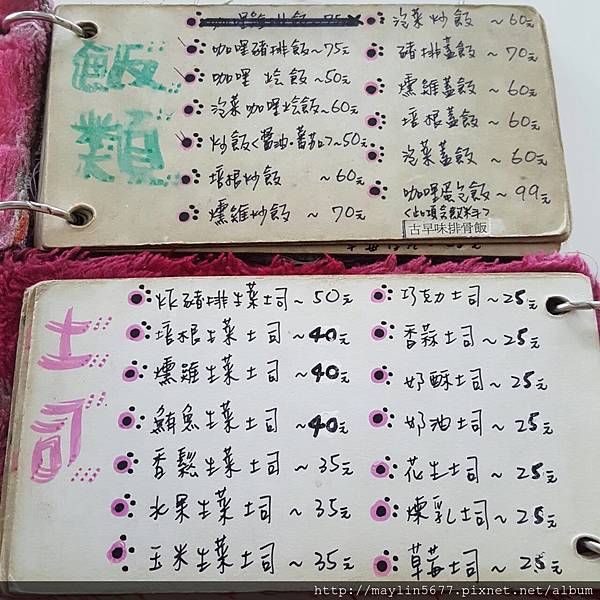 飯類
咖哩豬排飯~75元
咖哩 燴飯~50元
泡菜咖哩燴飯~60元
炒飯<醬油·蕃茄>~50元
培根炒飯 ~60元
燻雞炒飯 ~70元
泡菜炒飯 ~60元
豬排蓋飯 ~70元
燻雞蓋飯 ~60元
培根蓋飯 ~60元
泡菜蓋飯 ~60元
咖哩蛋包飯~99元
<此項含飲料>
古早味排骨飯
土司
炸豬排生菜土司~50元
培根生菜土司~40元
燻雞生菜土司~40元
鮪魚生菜土司~40元
香鬆生菜土司~35元
水果生菜土司~35元
玉米生菜土司~35元
巧克力土司~25元
香蒜土司~25元
奶酥土司~25元
奶油土司~25元
花生土司~25元
煉乳土司~25元
草莓土司~25元
http://maylin5677.pixnet.net/album